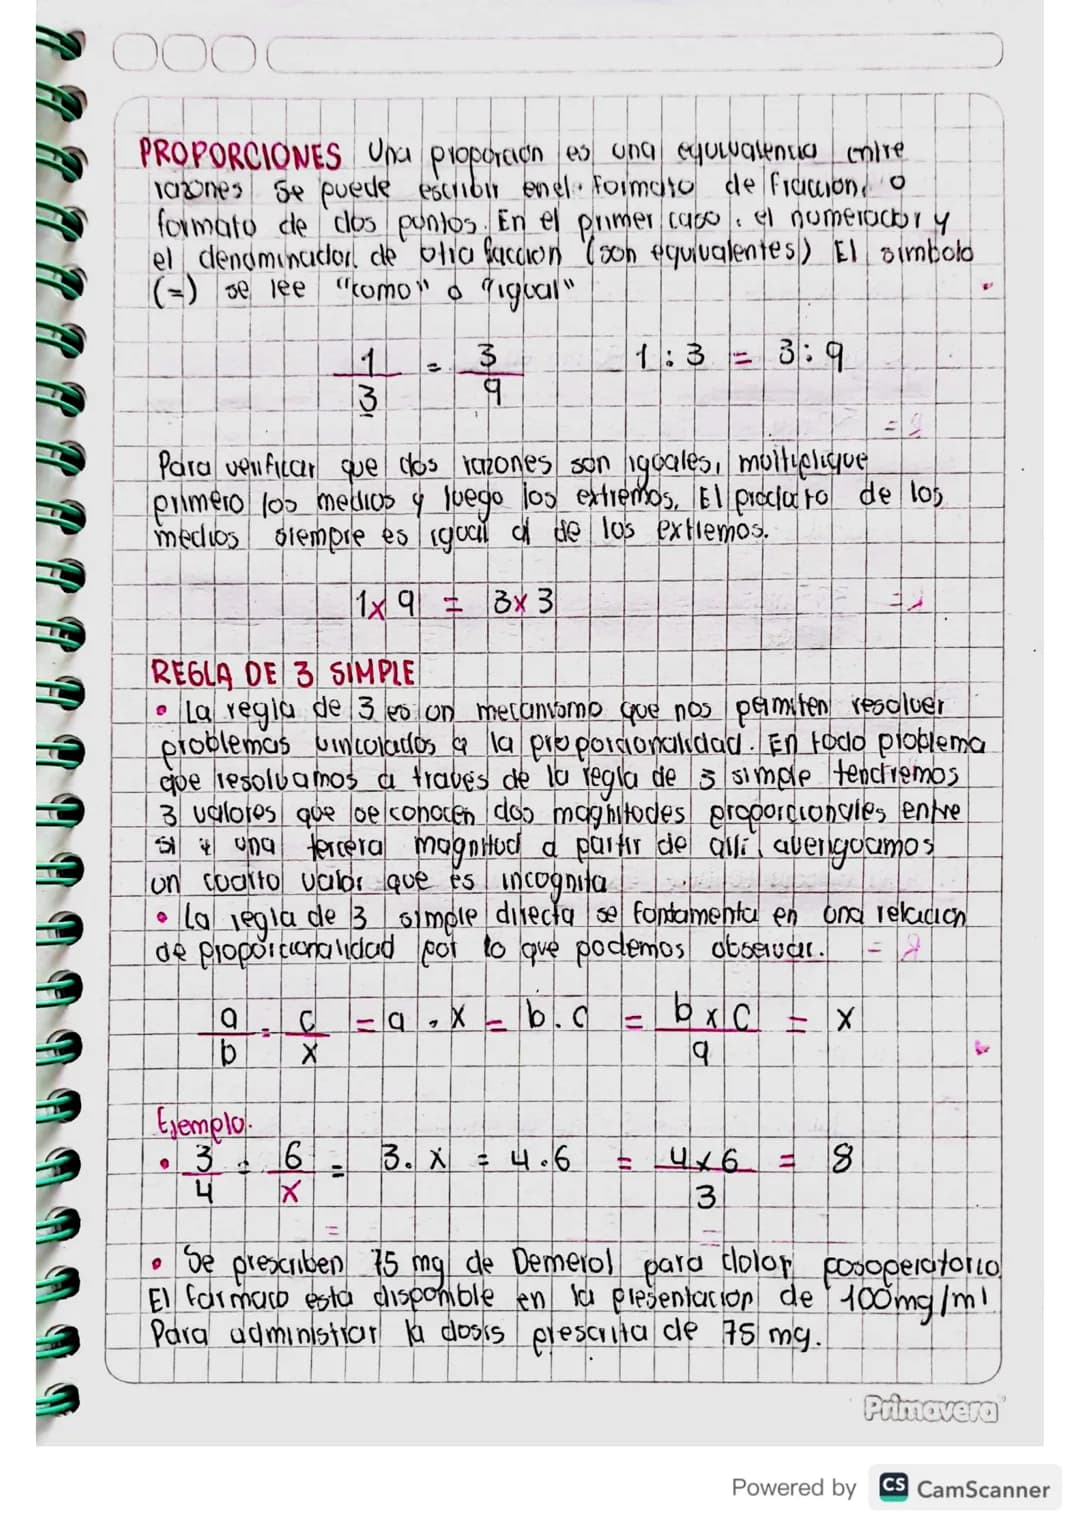 PROPORCIONES Una proporción es una equivalencia entre
razones Se puede escribir en el formato de fracción, o
formato de dos puntos. En el primer caso, el numerador y
el denominador de otra faccion (son equivalentes) El simbolo
(=) se lee "como" o "igual"
1/3 = 3/9 1 : 3 = 3 : 9
Para verificar que dos razones son iguales, multiplique
primero los medios y luego los extremos. El producto de los
medios siempre es igual al de los extremos.
1x9 = 3x3
REGLA DE 3 SIMPLE
• La regla de 3 es un mecanismo que nos permiten resolver
problemas vinculados a la proporcionalidad. En todo problema
que resolvamos a traves de la regla de 3 simple tendremos
3 valores que se conocen dos magnitudes proporcionales entre
si y una tercera magnitud a partir de alli, averiguamos
un cuarto valor que es incognita
• La regla de 3 simple directa se fundamenta en una relacion
de proporcionalidad por lo que podemos observar.
a/b = c/x = a . x = b . c = b x c / a = x
Ejemplo.
• 3/4 = 6/x = 3 . x = 4 . 6 = 4x6/3 = 8
• Se prescriben 75 mg de Demerol para dolor posoperatorio
El farmaco esta disponible en la presentacion de 100mg/ml
Para administrar la dosis prescrita de 75 mg.
Primavera
Powered by CS CamScanner